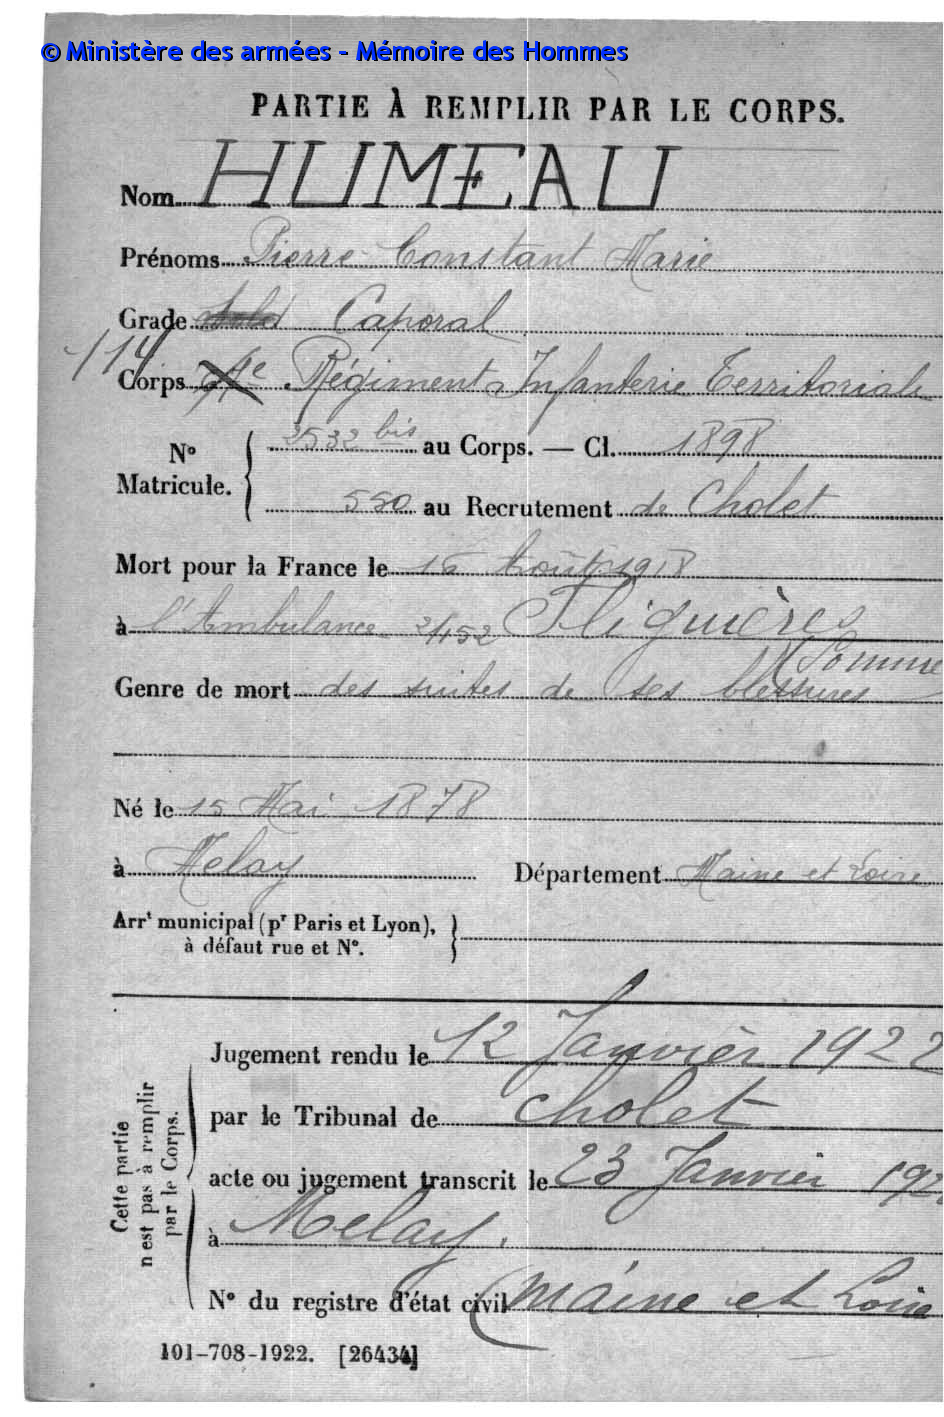 © Ministère des armées - Mémoire des Hommes
PARTIE À REMPLIR PAR LE CORPS.
Nom HUMEAU
Prénoms Pierre Constant Marie
Grade Caporal
114
Corps Régiment Infanterie Territoriale
No Matricule. 2532 bis au Corps. — Cl. 1898
550 au Recrutement de Cholet
Mort pour la France le 16 Août 1918
à l'Ambulance 2/152 Fliquières
(Somme
Genre de mort des suites de ses blessures
Né le 15 Mai 1878
à Melay Département Maine et Loire
Arrt municipal (pr Paris et Lyon),
à défaut rue et No.
Cette partie
n'est pas à remplir
par le Corps.
Jugement rendu le 12 Janvier 1922
par le Tribunal de Cholet
acte ou jugement transcrit le 23 Janvier 192
à Melay.
No du registre d'état civil (Maine et Loire
101-708-1922. [26434]